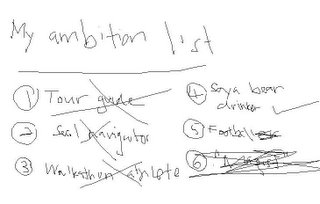 My ambition list
① Tour guide
② Seal navigator
③ Walkathon athlete
④ Soya bean
drinker
⑤ Football
⑥